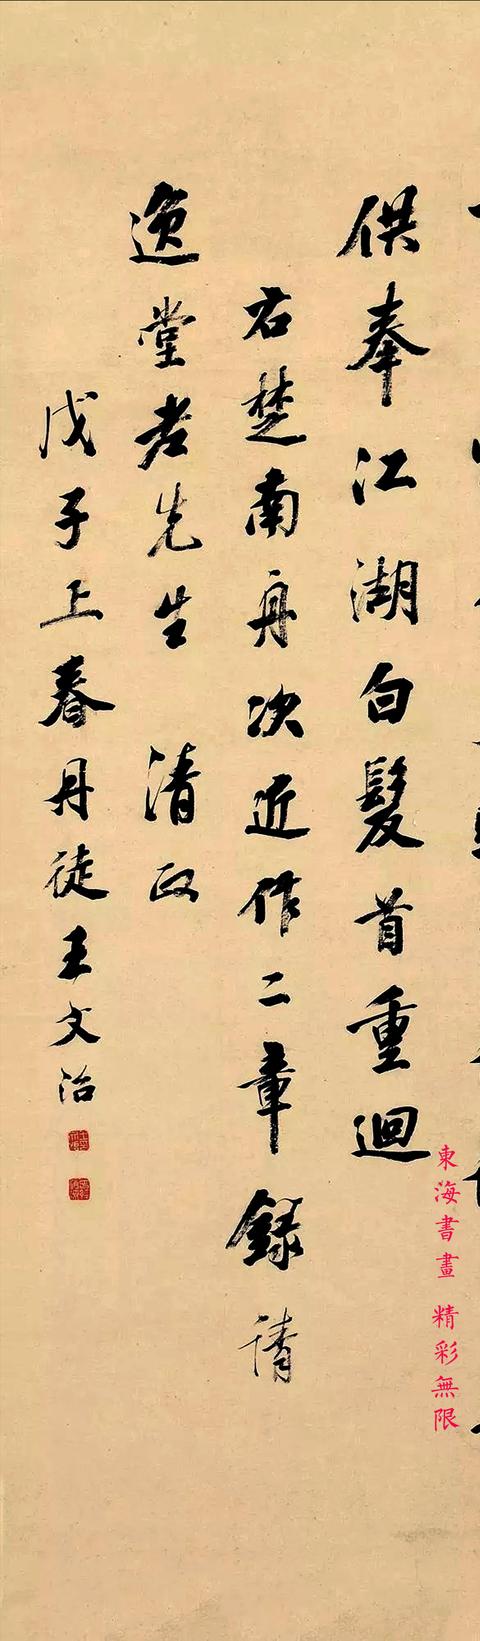 供奉江湖白髮首重迴
右楚南舟次近作二章錄請
逸堂老先生 清政
戊子上春丹徒王文治
東海書畫 精彩無限